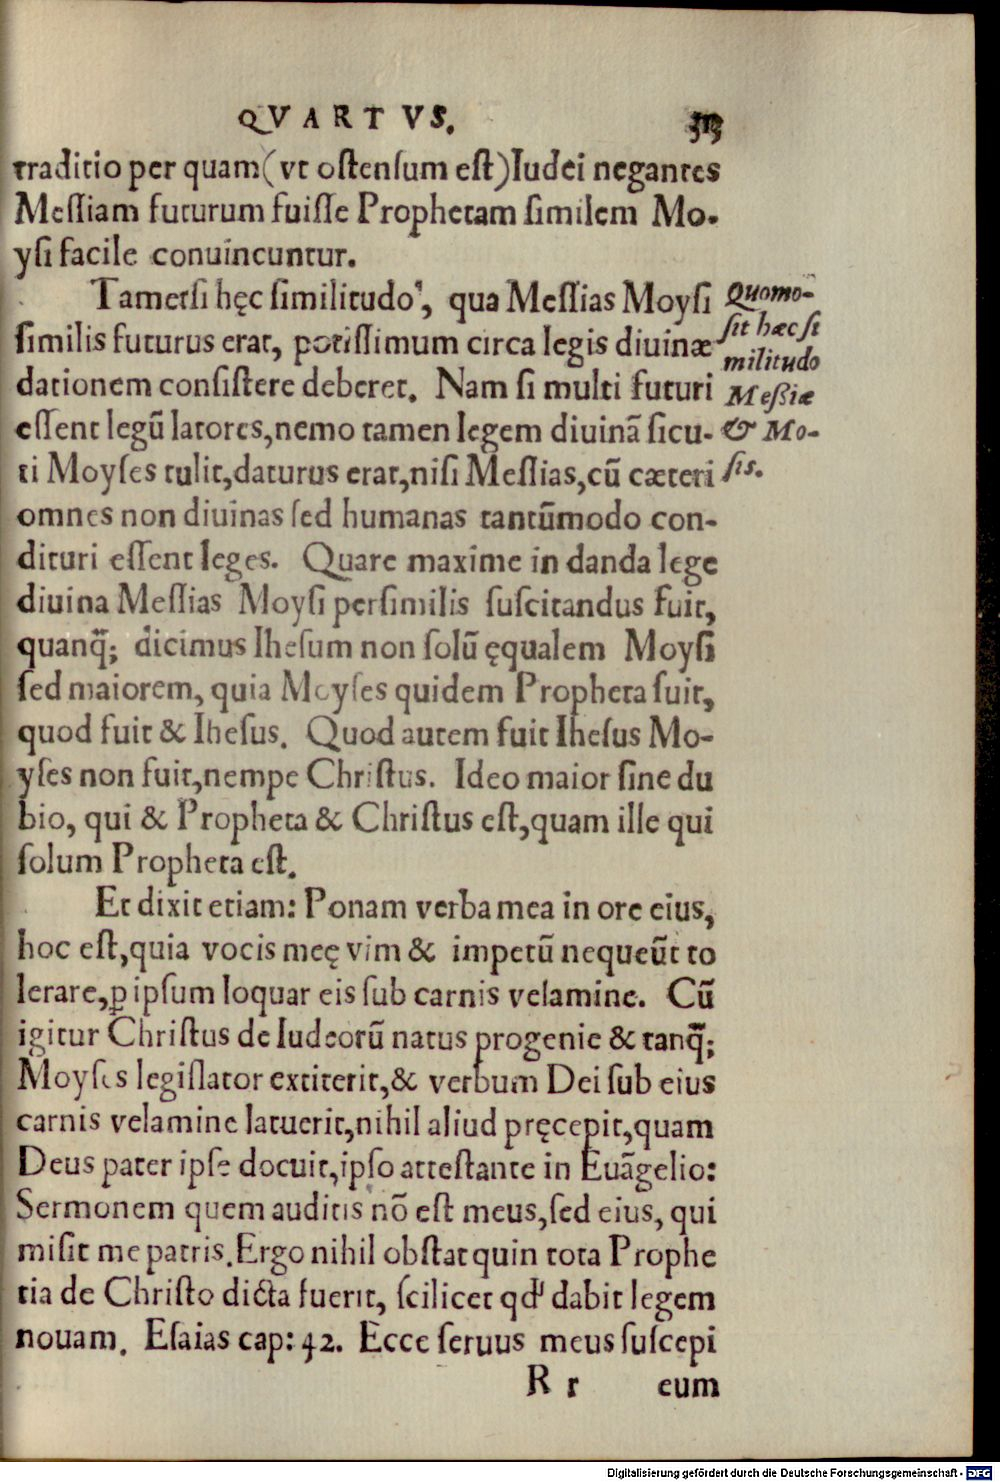 QVARTVS.
traditio per quam (vt ostensum est) Iudei negantes
Messiam futurum fuisse Prophetam similem Mo-
ysi facile conuincuntur.
Tametsi hęc similitudo, qua Messias Moysi
similis futurus erat, potissimum circa legis diuinæ
dationem consistere deberet. Nam si multi futuri
essent legū latores, nemo tamen legem diuinā sicu-
ti Moyses tulit, daturus erat, nisi Messias, cū cæteri
omnes non diuinas sed humanas tantūmodo con-
dituri essent leges. Quare maxime in danda lege
diuina Messias Moysi persimilis suscitandus fuit,
quanq̃; dicimus Ihesum non solū ęqualem Moysi
sed maiorem, quia Moyses quidem Propheta fuit,
quod fuit & Ihesus. Quod autem fuit Ihesus Mo-
yses non fuit, nempe Christus. Ideo maior sine du
bio, qui & Propheta & Christus est, quam ille qui
solum Propheta est.
Et dixit etiam: Ponam verba mea in ore eius,
hoc est, quia vocis meę vim & impetū nequeūt to
lerare, ꝑ ipsum loquar eis sub carnis velamine. Cū
igitur Christus de Iudeorū natus progenie & tanq̃;
Moyses legislator extiterit, & verbum Dei sub eius
carnis velamine latuerit, nihil aliud pręcepit, quam
Deus pater ipse docuit, ipso attestante in Euāgelio:
Sermonem quem auditis nō est meus, sed eius, qui
misit me patris. Ergo nihil obstat quin tota Prophe
tia de Christo dicta fuerit, scilicet qd' dabit legem
nouam. Esaias cap: 42. Ecce seruus meus suscepi
R r eum
Quomo-
sit hæc si
militudo
Messiæ
& Mo-
sis.
Digitalisierung gefördert durch die Deutsche Forschungsgemeinschaft - DFG